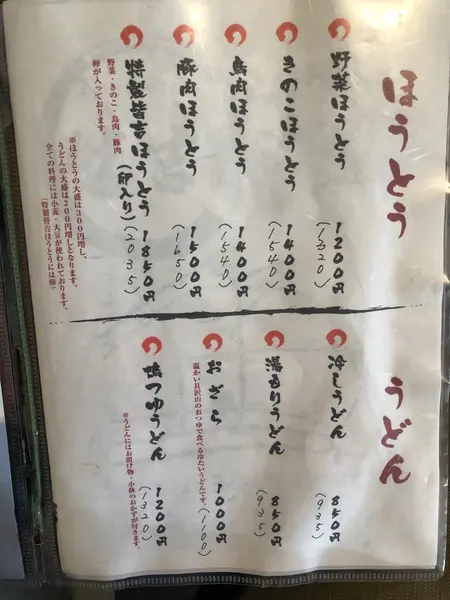 ほうとう
野菜ほうとう 1200円
(1320)
きのこほうとう 1400円
(1540)
鳥肉ほうとう 1400円
(1540)
豚肉ほうとう 1500円
(1650)
特製皆吉ほうとう(卵入り) 1850円
(2035)
野菜・きのこ・鳥肉・豚肉
卵が入っております。
※ほうとうの大盛は300円増し、
うどんの大盛は200円増しとなります。
全ての料理には小麦・大豆が使われております。
(特製皆吉ほうとうには卵)
うどん
冷しうどん 850円
(935)
湯もりうどん 850円
(935)
おざら 1000円
(1100)
温かい具沢山のおつゆで食べる冷たいうどんです。
鴨つゆうどん 1200円
(1320)
※うどんにはお漬け物・小鉢のおかずが付きます。